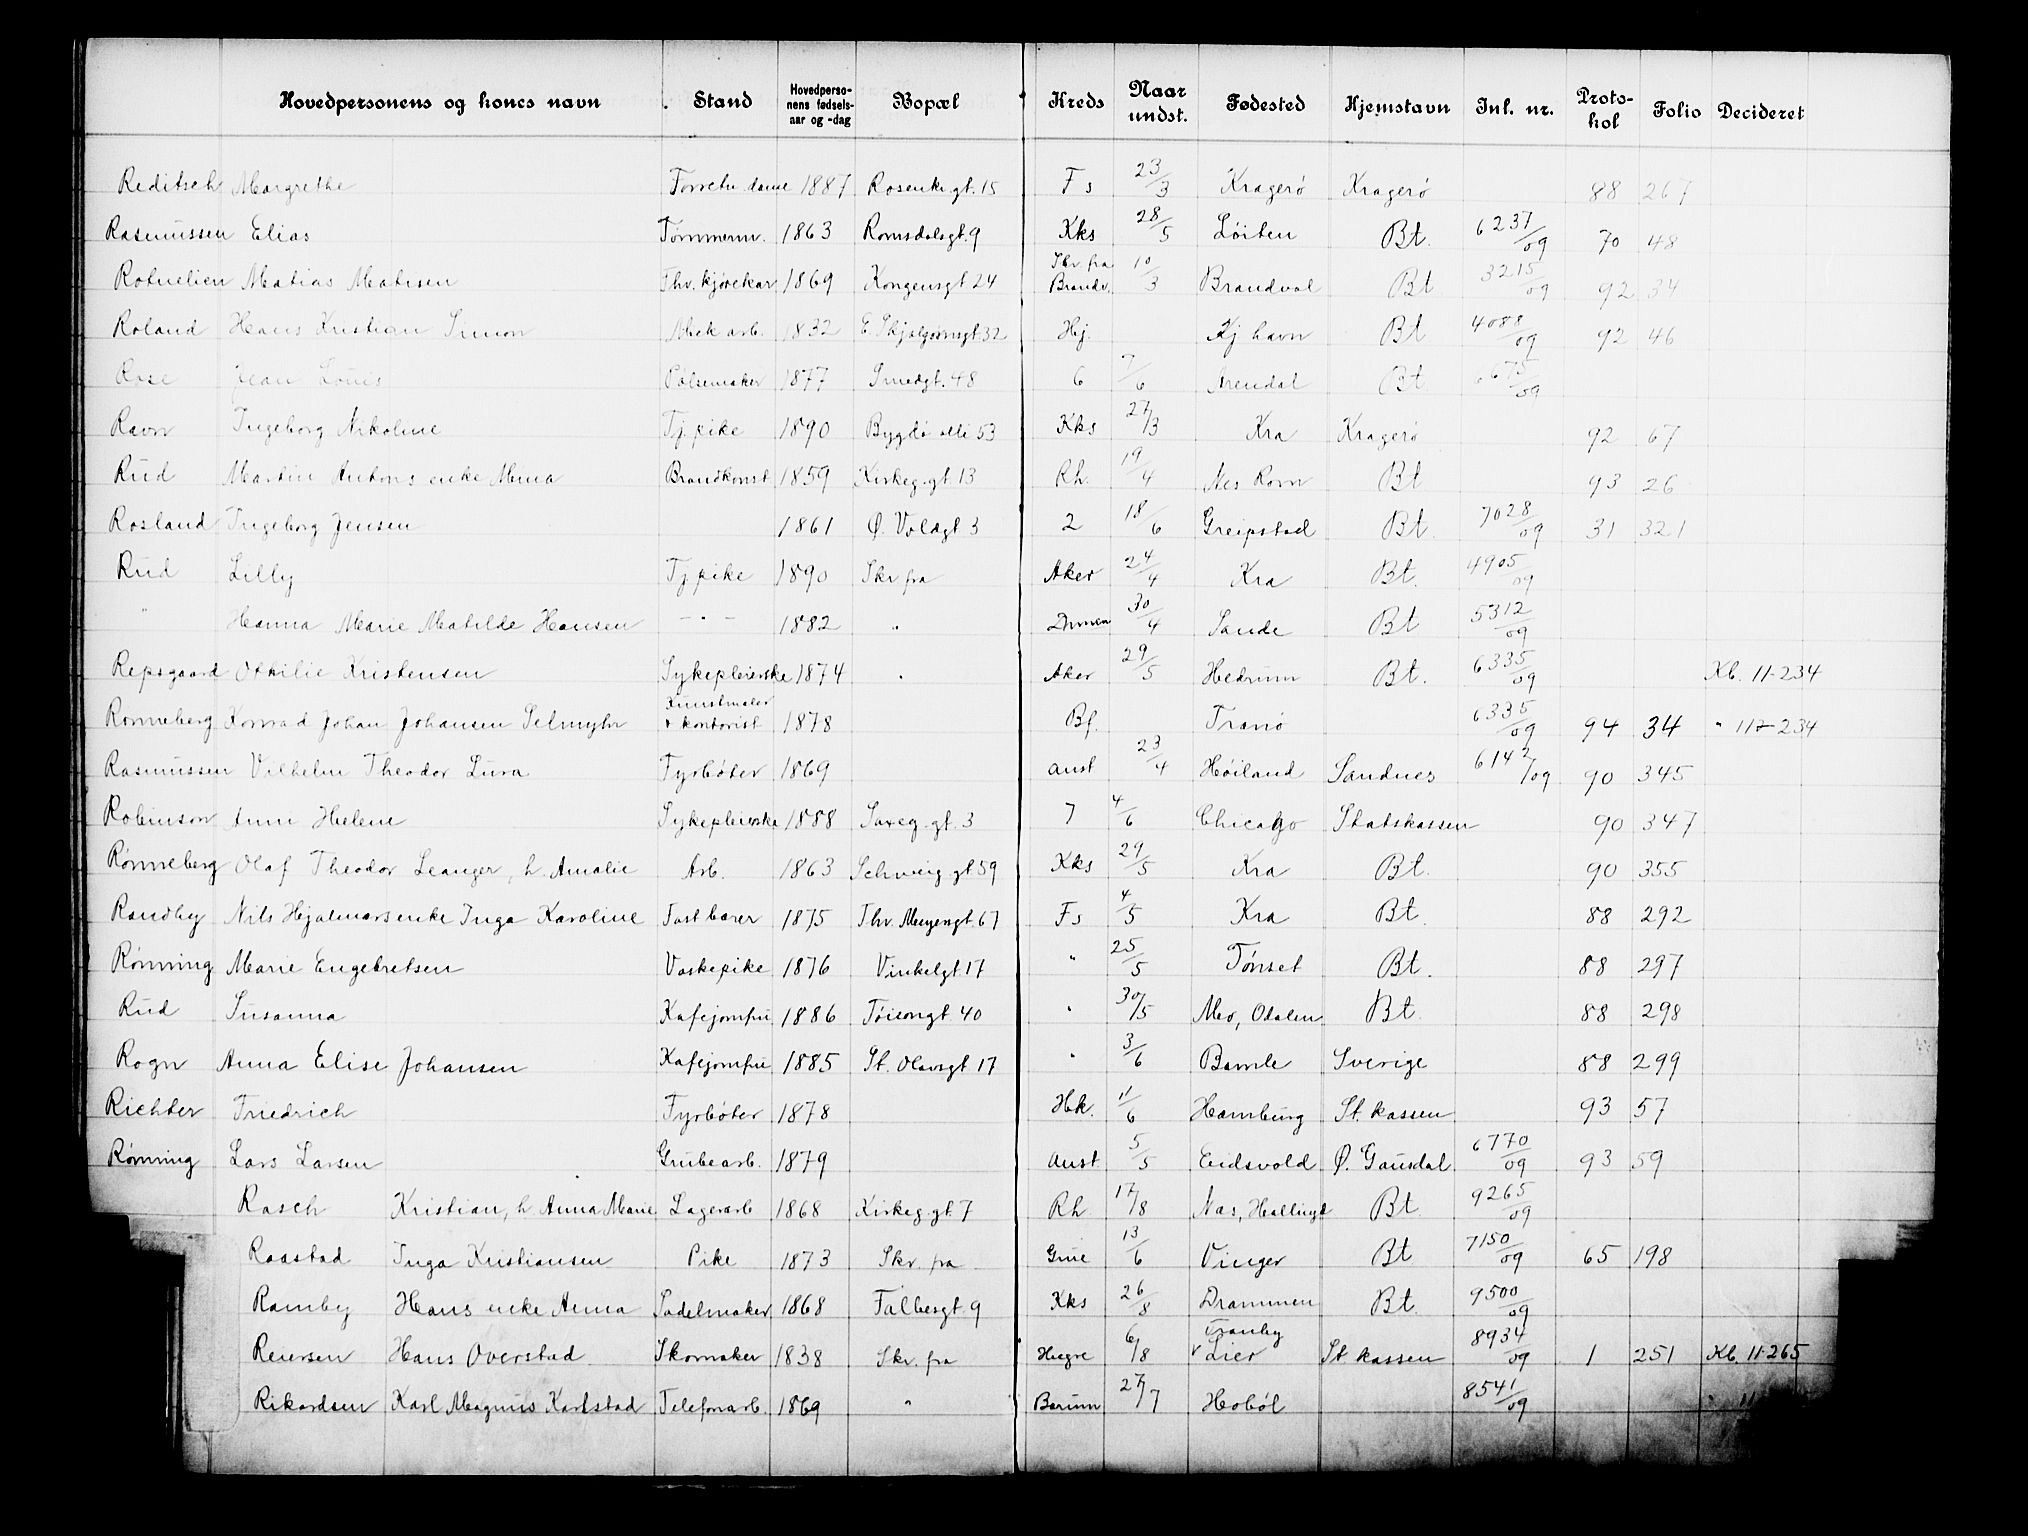 Hovedpersonens og kones navn Stand Hovedpersonens fødselsaar og -dag Bopæl Kreds Naar undst. Fødested Hjemstavn Inl. nr. Protokol Folio Decideret
Reditsch Margrethe dame 1887 Rosenkr.gt. 15 Fs 23/3 Kragerø Kragerø 88 267
Rasmussen Elias Tømmerm. 1863 Romsdalsgt. 9 Kks 28/5 Løiten Bt. 6237/09 70 48
Matias Matisen Thv. kjørekar 1869 Kongensgt 24 Skr fra Brandv. 10/3 Brandval Bt 3215/09 92 34
Roland Hans Kristian Simon Mek arb. 1832 32 Hj. Kj havn Bt 4088/09 92 46
Rose Jean Louis Pølsemaker 1877 Smedgt. 48 6 7/6 Arendal Bt 6675/09
Ravn Ingeborg Nikoline Tj pike 1890 Bygdø alle 53 Kks 27/3 Kra Kragerø 92 67
Rud Martin Antons enke Mina Brandkonst 1859 Kirkeg.gt 13 Rh. 19/4 Nes Rom Bt 93 26
Rosland Ingeborg Jensen 1861 Ø. Voldgt 3 2 18/6 Greipstad Bt. 7028/09 31 321
Rud Lilly Tj pike 1890 Skr fra Aker 24/4 Kra Bt. 4905/09
" Hanna Marie Matilde Hansen - " - 1882 " Drmen 30/4 Sande Bt 5312/09
Repsgaard Othilie Kristensen Sykepleierske 1874 " Aker 29/5 Hedrum Bt. 6335/09 Kb. 11-234
Rønneberg Konrad Johan Johansen Selmyhr Kunstmaler + kontorist 1878 Bf. Tranø 6335/09 94 34 " 11-234
Rasmussen Vilhelm Theodor Lura Fyrbøter 1869 Aust 23/4 Høiland Sandnes 6142/09 90 345
Robinson Anni Helene Sykepleierske 1888 Saxeg.gt. 3 7 4/6 Chicago Statskassen 90 347
Rønneberg Olaf Theodor Leanger, h. Amalie Arb. 1863 Schweig.gt 59 Kks 29/5 Kra Bt. 90 355
Randby Nils Hjalmars enke Inga Karoline Fast bærer 1875 Thv. Meyersgt. 67 Fs 4/5 Kra Bt. 88 292
Rønning Marie Engebretsen Vaskepike 1876 Vinkelgt 17 " 25/5 Tønset Bt. 88 297
Rud Susanna Kafejomfru 1886 Tøiengt 40 " 30/5 Mo, Odalen Bt. 88 298
Rogn Anna Elise Johansen Kafejomfru 1885 St. Olavsgt 17 " 3/6 Bamle Sverige 88 299
Richter Friedrich Fyrbøter 1878 Hk. 11/6 Hamburg St. kassen 93 57
Rønning Lars Larsen Grubearb. 1879 Aust. 5/5 Eidsvold Ø. Gausdal 6770/09 93 59
Rasch Kristian, h. Anna Marie Lagerarb 1868 Kirkeg.gt. 7 Rh. 17/8 Nas, Hallingd Bt. 9265/09
Raastad Inga Kristiansen Pike 1873 Skr. fra Grue 13/6 Vinger Bt 7150/09 65 198
Ramby Hans enke Anna Sadelmaker 1868 Falbesgt. 9 Kks 26/8 Drammen Bt. 9500/09
Reiersen Hans Overstad Skomaker 1838 Skr. fra Hegre 6/8 Tranby Lier St kassen 8934/09 1 251 Kb. 11-265
Rikardsen Karl Magnus Karlstad Telefonarb. 1869 " Bærum 27/7 Hobøl 8541/09 " 11